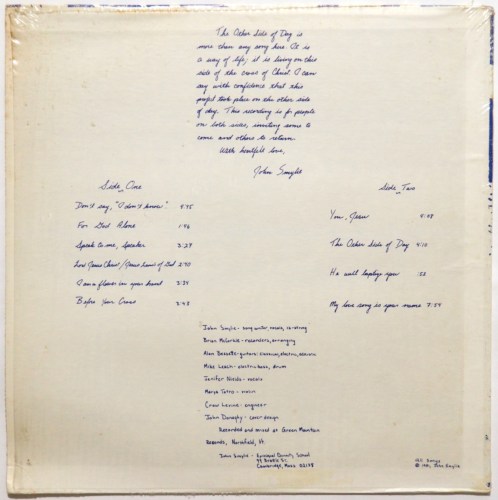 The Other Side of Day is
more than any song here. It is
a way of life; it is living on this
side of the cross of Christ. I can
say with confidence that this
project took place on the other side
of day. This recording is for people
on both sides, inviting some to
come and others to return.
With heartfelt love,
John Smylie
Side One
Don't say, "I don't know" 4:45
For God Alone
Speak to me, Speaker 3:27
Lord Jesus Christ/Jesus Lamb of God
I am a flower in your hand
Before Your Cross 2:43
Side Two
You, Jesus
The Other Side of Day 4:10
He will you
My love song is your name
John Smylie - song writer, vocals, six-string
Brian - recorders, arranging
Alan - guitars: classical, electric, acoustic
Mike Leach - electric bass, drum
Jenifer - vocals
- violin
Levine - engineer
John Donaghy - cover design
Recorded and mixed at Green Mountain
Records, Northfield, Vt.
John Smylie - Episcopal Divinity School
99 Brattle St.
Cambridge, Mass 02138
All Songs
© 1981, John Smylie